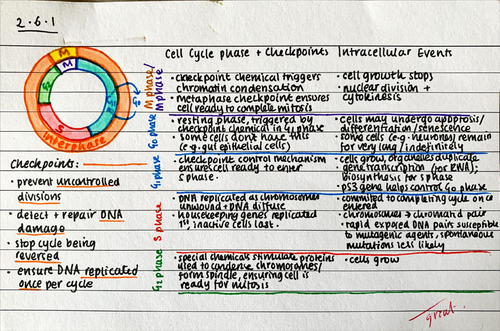 2.6.1
Cell Cycle phase + Checkpoints
Intracellular Events
M
M
G₂
S
Interphase
G₀
M phase/
M phase
· checkpoint chemical triggers
chromatin condensation
· metaphase checkpoint ensures
cell ready to complete mitosis
· cell growth stops
· nuclear division +
cytokinesis
G₀ phase
· resting phase, triggered by
checkpoint chemical in G₁ phase
· some cells dont have this
(e.g. gut epithelial cells)
· cells may undergo apoptosis/
differentiation/senescence
· Some cells (e.g neurones) remain
for very long/indefinitely
G₁ phase
· checkpoint control mechanism
ensure cell ready to enter
S phase.
· cells grow, organelles duplicate
· gene transcription (for RNA);
biosynthesis for S phase
· p53 gene helps control G₀ phase
S phase
· DNA replicated as chromosomes
unwound + DNA diffuse
· housekeeping genes replicated
1st, inactive cells last.
· commited to completing cycle once
entered
· chromosomes → chromatid pair
· rapid exposed DNA pairs susceptible
to mutagenic agents, spontaneous
mutations less likely
G₂ phase
· special chemicals stimulate proteins
used to condense chromosomes/
form spindle, ensuring cell is
ready for mitosis
· cells grow
Checkpoints:
· prevent uncontrolled
divisions
· detect + repair DNA
damage
· stop cycle being
reversed
· ensure DNA replicated
once per cycle
great.